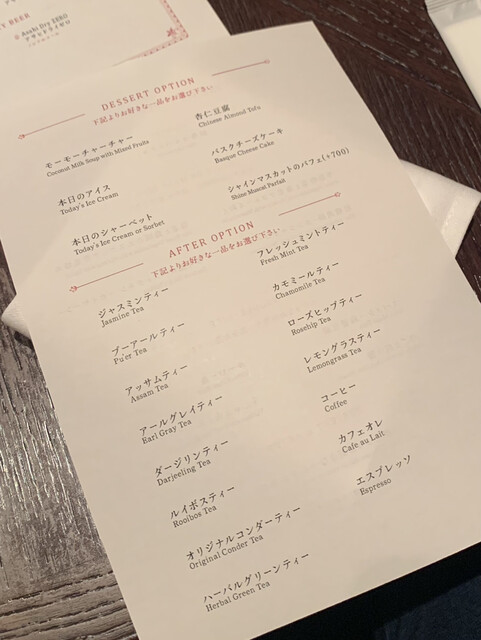 Y BEER
Asahi Dry ZERO
アサヒドライゼロ
DESSERT OPTION
下記よりお好きな一品をお選び下さい
モーモーチャーチャー
Coconut Milk Soup with Mixed Fruits
本日のアイス
Today's Ice Cream
本日のシャーベット
Today's Ice Cream or Sorbet
杏仁豆腐
Chinese Almond Tofu
バスクチーズケーキ
Basque Cheese Cake
シャインマスカットのパフェ(+700)
Shine Muscat Parfait
AFTER OPTION
下記よりお好きな一品をお選び下さい
ジャスミンティー
Jasmine Tea
プーアールティー
Pu'er Tea
アッサムティー
Assam Tea
アールグレイティー
Earl Gray Tea
ダージリンティー
Darjeeling Tea
ルイボスティー
Rooibos Tea
オリジナルコンダーティー
Original Conder Tea
ハーバルグリーンティー
Herbal Green Tea
フレッシュミントティー
Fresh Mint Tea
カモミールティー
Chamomile Tea
ローズヒップティー
Rosehip Tea
レモングラスティー
Lemongrass Tea
コーヒー
Coffee
カフェオレ
Cafe au Lait
エスプレッソ
Espresso